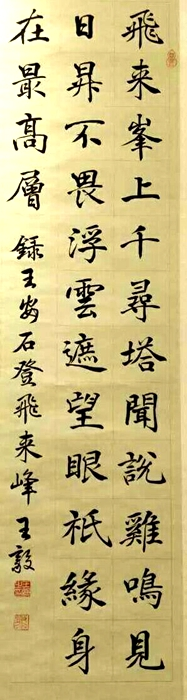 飛来峯上千尋塔聞說雞鳴見
日昇不畏浮雲遮望眼祇緣身
在最高層 録王安石登飛来峰 王毅